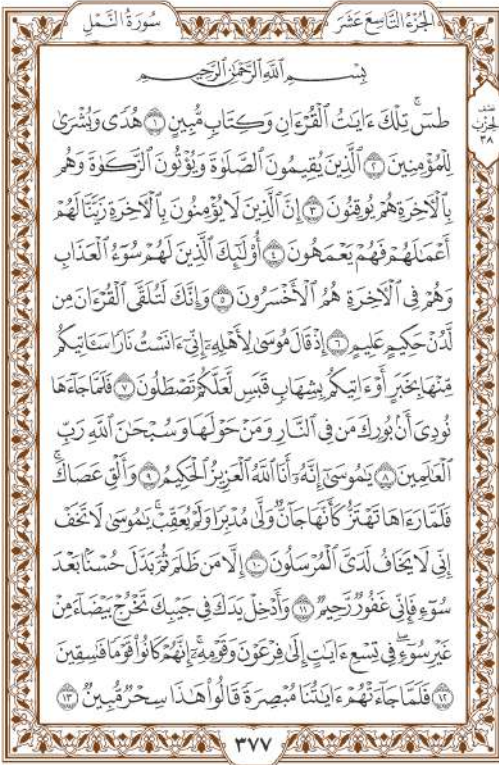 الجُزْءُ التَّاسِعَ عَشَرَ
سُورَةُ النَّمْلِ
نصف
الحزب
٣٨
بِسْمِ اللَّهِ الرَّحْمَٰنِ الرَّحِيمِ
طسٓۚ تِلْكَ ءَايَٰتُ ٱلْقُرْءَانِ وَكِتَابٖ مُّبِينٍ ۝١ هُدٗى وَبُشْرَىٰ
لِلْمُؤْمِنِينَ ۝٢ ٱلَّذِينَ يُقِيمُونَ ٱلصَّلَوٰةَ وَيُؤْتُونَ ٱلزَّكَوٰةَ وَهُم
بِٱلْأٓخِرَةِ هُمْ يُوقِنُونَ ۝٣ إِنَّ ٱلَّذِينَ لَا يُؤْمِنُونَ بِٱلْأٓخِرَةِ زَيَّنَّا لَهُمْ
أَعْمَٰلَهُمْ فَهُمْ يَعْمَهُونَ ۝٤ أُوْلَٰٓئِكَ ٱلَّذِينَ لَهُمْ سُوٓءُ ٱلْعَذَابِ
وَهُمْ فِي ٱلْأٓخِرَةِ هُمُ ٱلْأَخْسَرُونَ ۝٥ وَإِنَّكَ لَتُلَقَّى ٱلْقُرْءَانَ مِن
لَّدُنْ حَكِيمٍ عَلِيمٍ ۝٦ إِذْ قَالَ مُوسَىٰ لِأَهْلِهِۦٓ إِنِّيٓ ءَانَسْتُ نَارٗا سَـَٔاتِيكُم
مِّنْهَا بِخَبَرٍ أَوْ ءَاتِيكُم بِشِهَابٖ قَبَسٖ لَّعَلَّكُمْ تَصْطَلُونَ ۝٧ فَلَمَّا جَآءَهَا
نُودِيَ أَنۢ بُورِكَ مَن فِي ٱلنَّارِ وَمَنْ حَوْلَهَا وَسُبْحَٰنَ ٱللَّهِ رَبِّ
ٱلْعَٰلَمِينَ ۝٨ يَٰمُوسَىٰٓ إِنَّهُۥٓ أَنَا ٱللَّهُ ٱلْعَزِيزُ ٱلْحَكِيمُ ۝٩ وَأَلْقِ عَصَاكَۚ
فَلَمَّا رَءَاهَا تَهْتَزُّ كَأَنَّهَا جَآنّٞ وَلَّىٰ مُدْبِرٗا وَلَمْ يُعَقِّبْۚ يَٰمُوسَىٰ لَا تَخَفْ
إِنِّي لَا يَخَافُ لَدَيَّ ٱلْمُرْسَلُونَ ۝١٠ إِلَّا مَن ظَلَمَ ثُمَّ بَدَّلَ حُسْنَۢا بَعْدَ
سُوٓءٖ فَإِنِّي غَفُورٞ رَّحِيمٞ ۝١١ وَأَدْخِلْ يَدَكَ فِي جَيْبِكَ تَخْرُجْ بَيْضَآءَ مِنْ
غَيْرِ سُوٓءٖۖ فِي تِسْعِ ءَايَٰتٍ إِلَىٰ فِرْعَوْنَ وَقَوْمِهِۦٓۚ إِنَّهُمْ كَانُواْ قَوْمٗا فَٰسِقِينَ
۝١٢ فَلَمَّا جَآءَتْهُمْ ءَايَٰتُنَا مُبْصِرَةٗ قَالُواْ هَٰذَا سِحْرٞ مُّبِينٞ ۝١٣
٣٧٧